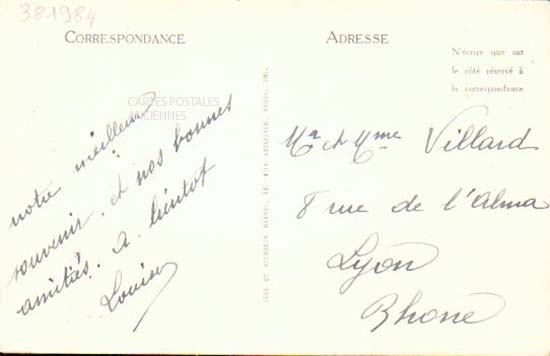 381984
CORRESPONDANCE
ADRESSE
N'écrire que sur
le côté réservé à
la correspondance
CARTES POSTALES
ANCIENNES
notre meilleur
souvenir et nos bonnes
amitiés. A bientôt
Louise
Mr et Mme Villard
8 rue de l'Alma
Lyon
Rhone